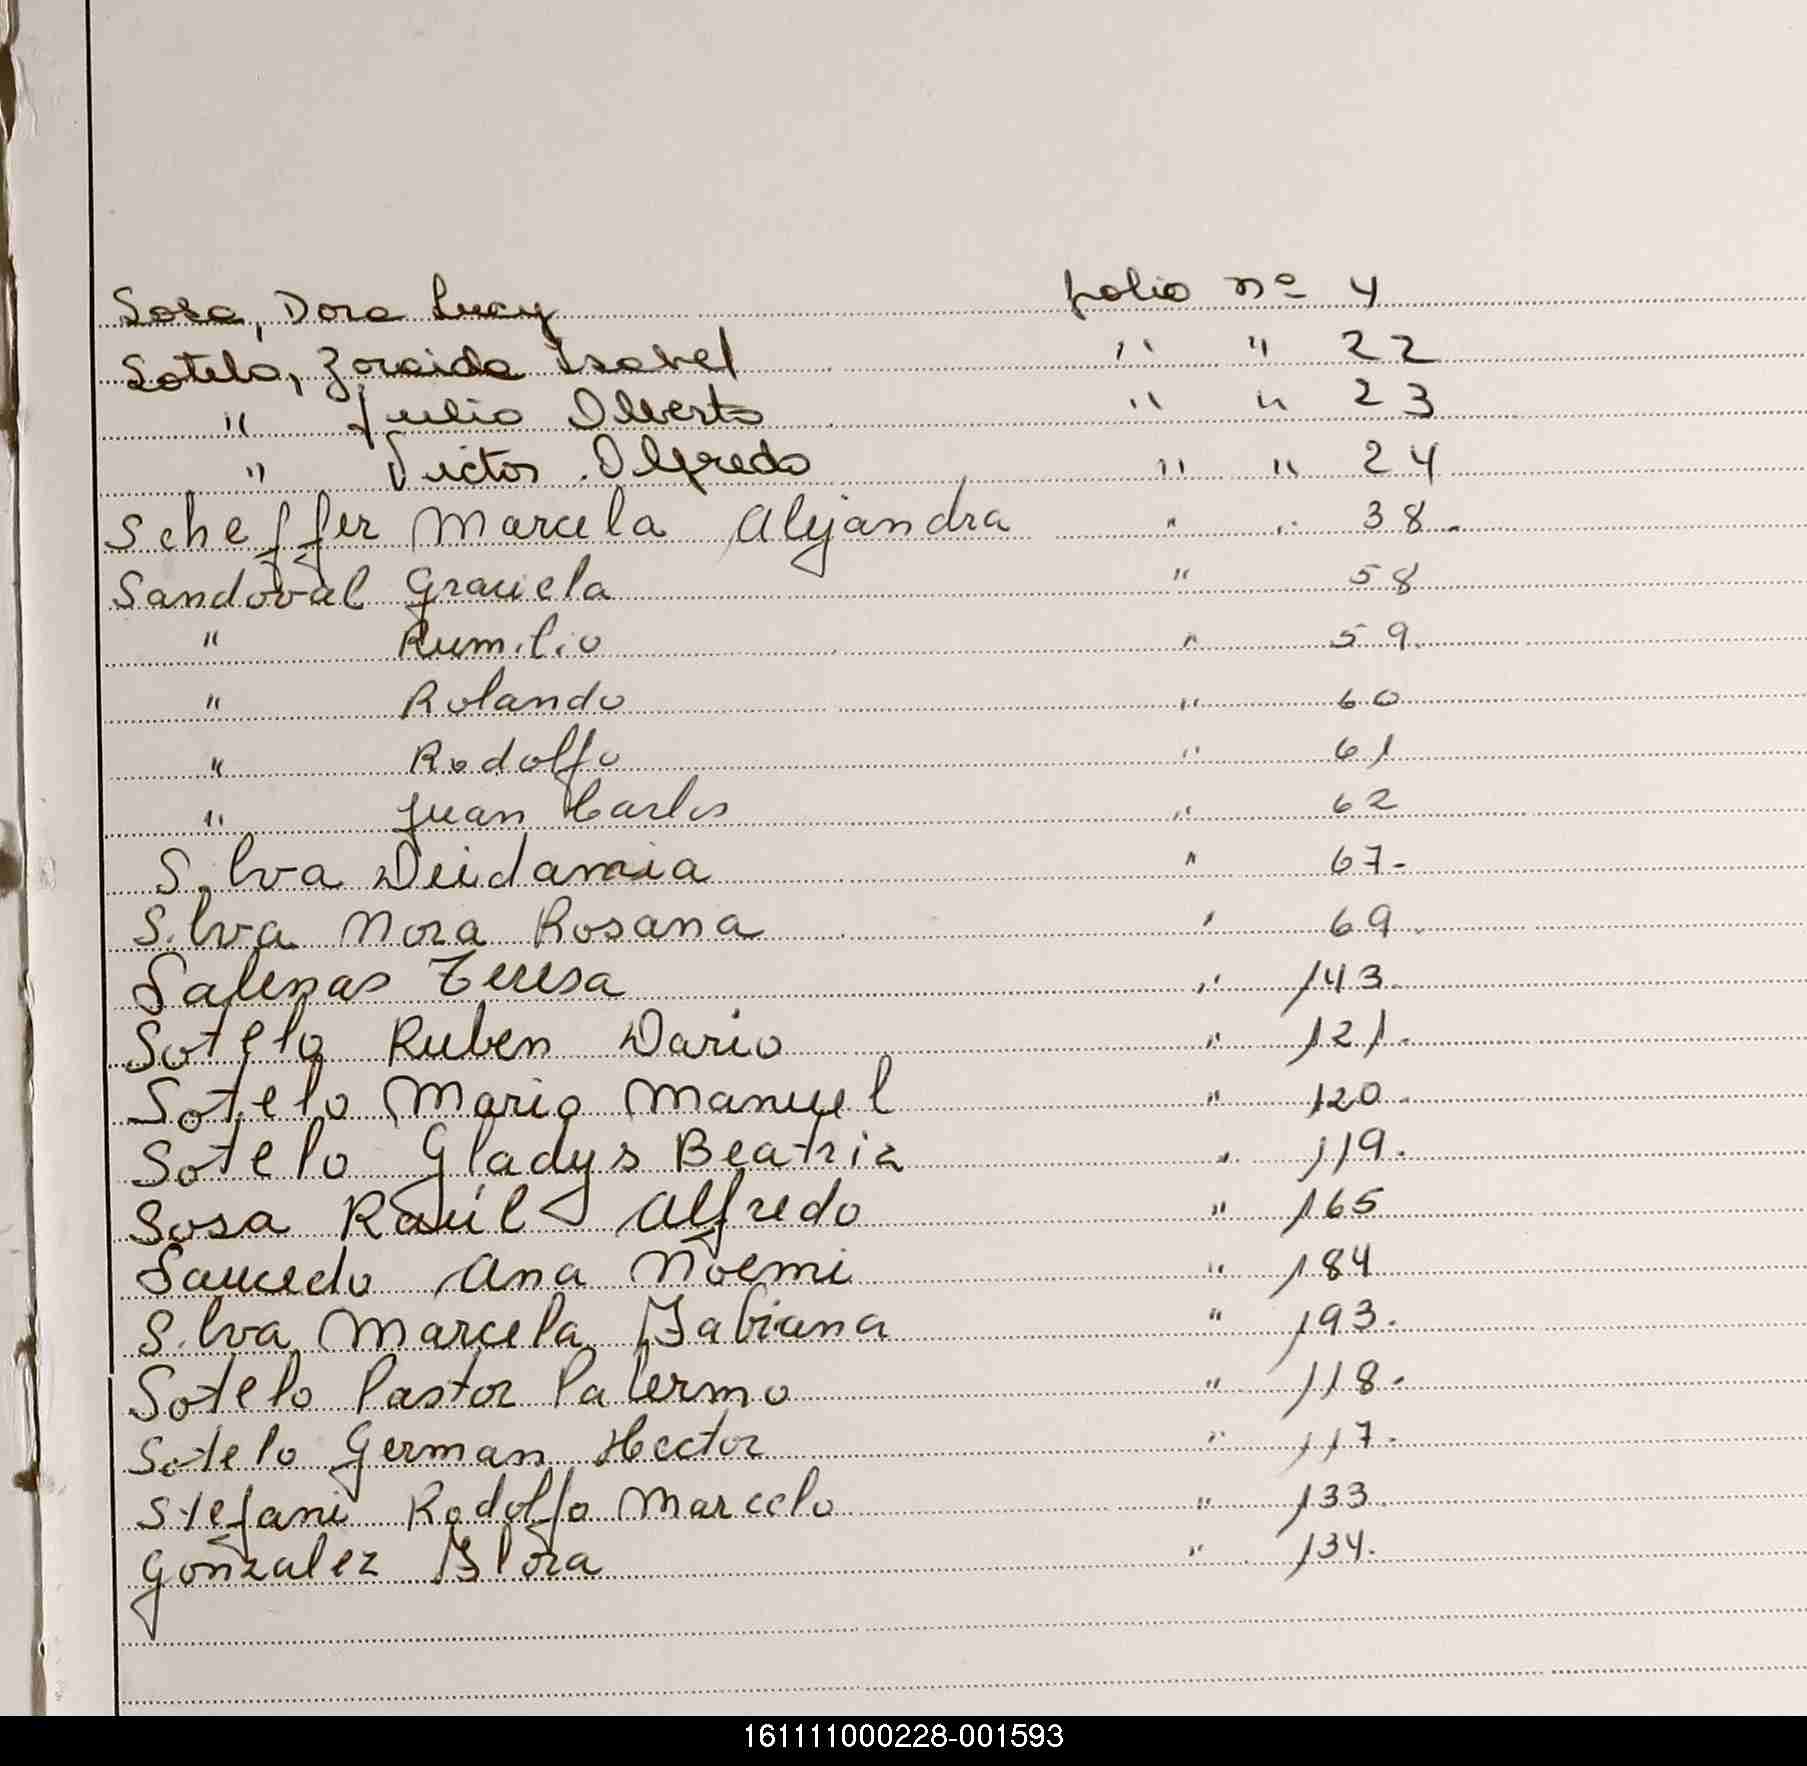 Sosa, Dora Lucy folio nº 4
Sotelo, Zoraida Isabel " " 22
" Julio Alberto " " 23
" Victor Alfredo " " 24
Scheffer Marcela Alejandra " " 38.
Sandoval Graciela " 58
" Rumilio " 59.
" Rolando " 60
" Rodolfo " 61
" Juan Carlos " 62
Silva Deidamia " 67-
Silva Nora Rosana " 69.
Salinas Teresa " 143.
Sotelo Ruben Dario " 121.
Sotelo Mario Manuel " 120.
Sotelo Gladys Beatriz " 119.
Sosa Raúl Alfredo " 165
Saucedo Ana Noemi " 184
Silva Marcela Fabiana " 193.
Sotelo Pastor Palermo " 118.
Sotelo German Hector " 117.
Stefani Rodolfo Marcelo " 133.
Gonzalez Flora " 134.
161111000228-001593